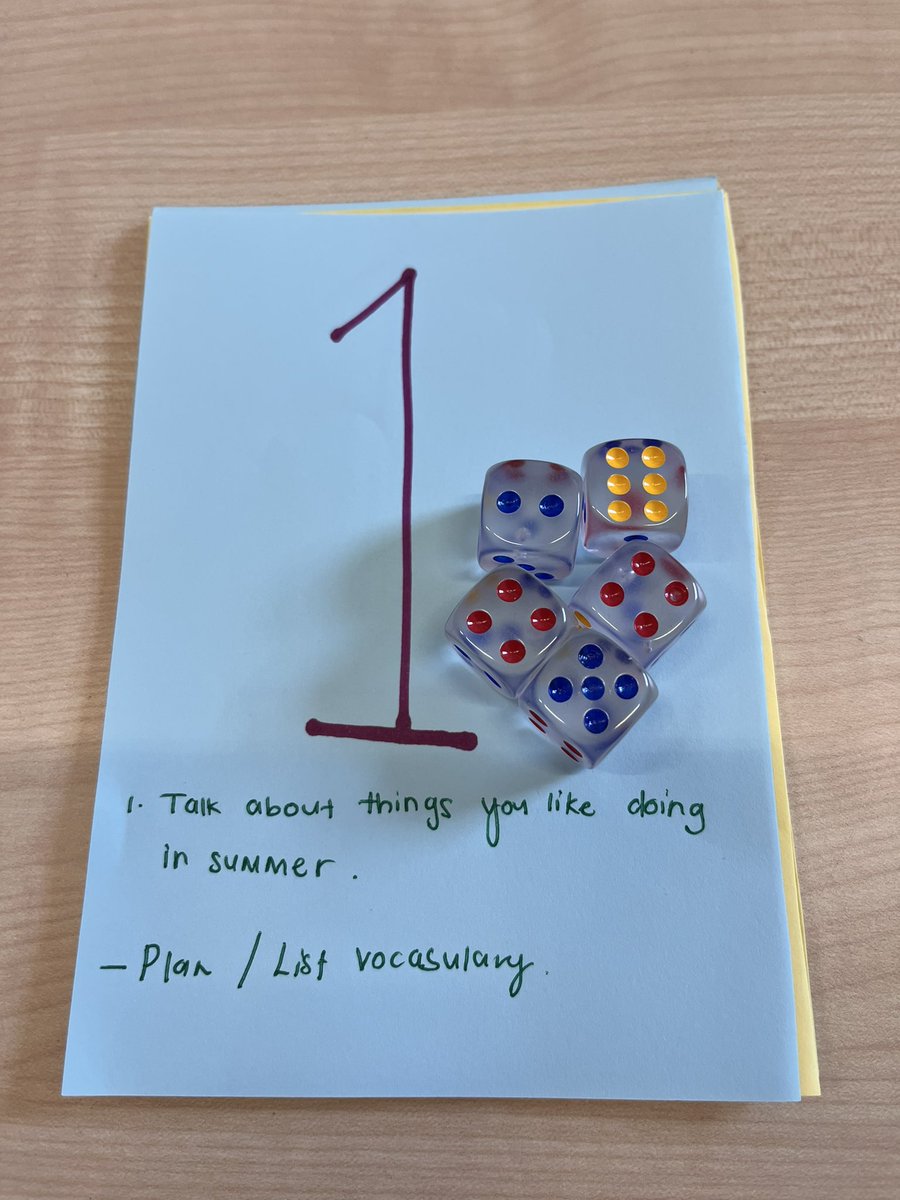 1
1. Talk about things you like doing
in summer.
– Plan / List vocasulary.